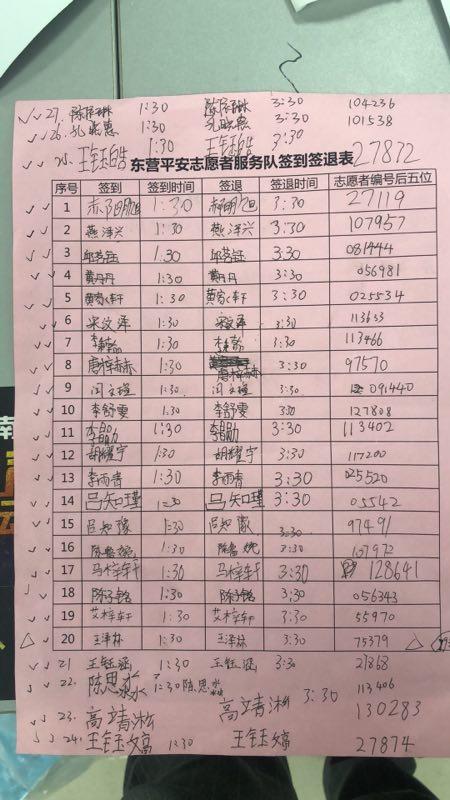 27. 陈辰琳 1:30 陈辰琳 3:30 104236
26. 孔晓惠 1:30 孔晓惠 3:30 101538
25. 王钰皓 1:30 王钰皓 3:30 27872
东营平安志愿者服务队签到签退表
序号 签到 签到时间 签退 签退时间 志愿者编号后五位
1 1:30 3:30 27119
2 燕洋兴 1:30 燕洋兴 3:30 107957
3 邱茗钰 1:30 邱茗钰 3:30 081444
4 黄丹丹 1:30 黄丹丹 3:30 056981
5 1:30 3:30 025534
6 宋汶泽 1:30 宋汶泽 3:30 113653
7 1:30 3:30 113466
8 唐梓赫 1:30 唐梓赫 3:30 97570
9 闫文瑄 1:30 闫文瑄 3:30 091440
10 李舒雯 1:30 李舒雯 3:30 127808
11 1:30 3:30 113402
12 胡耀宇 1:30 胡耀宇 3:30 117200
13 李雨青 1:30 李雨青 3:30 025520
14 吕知瑾 1:30 吕知瑾 3:30 05542
15 1:30 3:30 97491
16 1:30 3:30 107972
17 马梓轩 1:30 马梓轩 3:30 128641
18 陈子铭 1:30 陈子铭 3:30 056343
19 艾梓轩 1:30 艾梓轩 3:30 55970
20 王泽林 1:30 王泽林 3:30 75379
21 王钰涵 1:30 王钰涵 3:30 27868
22. 陈思淼 1:30 陈思淼 113406
23. 高靖淞 高靖淞 3:30 130283
24. 王钰嫣 1:30 王钰嫣 27874